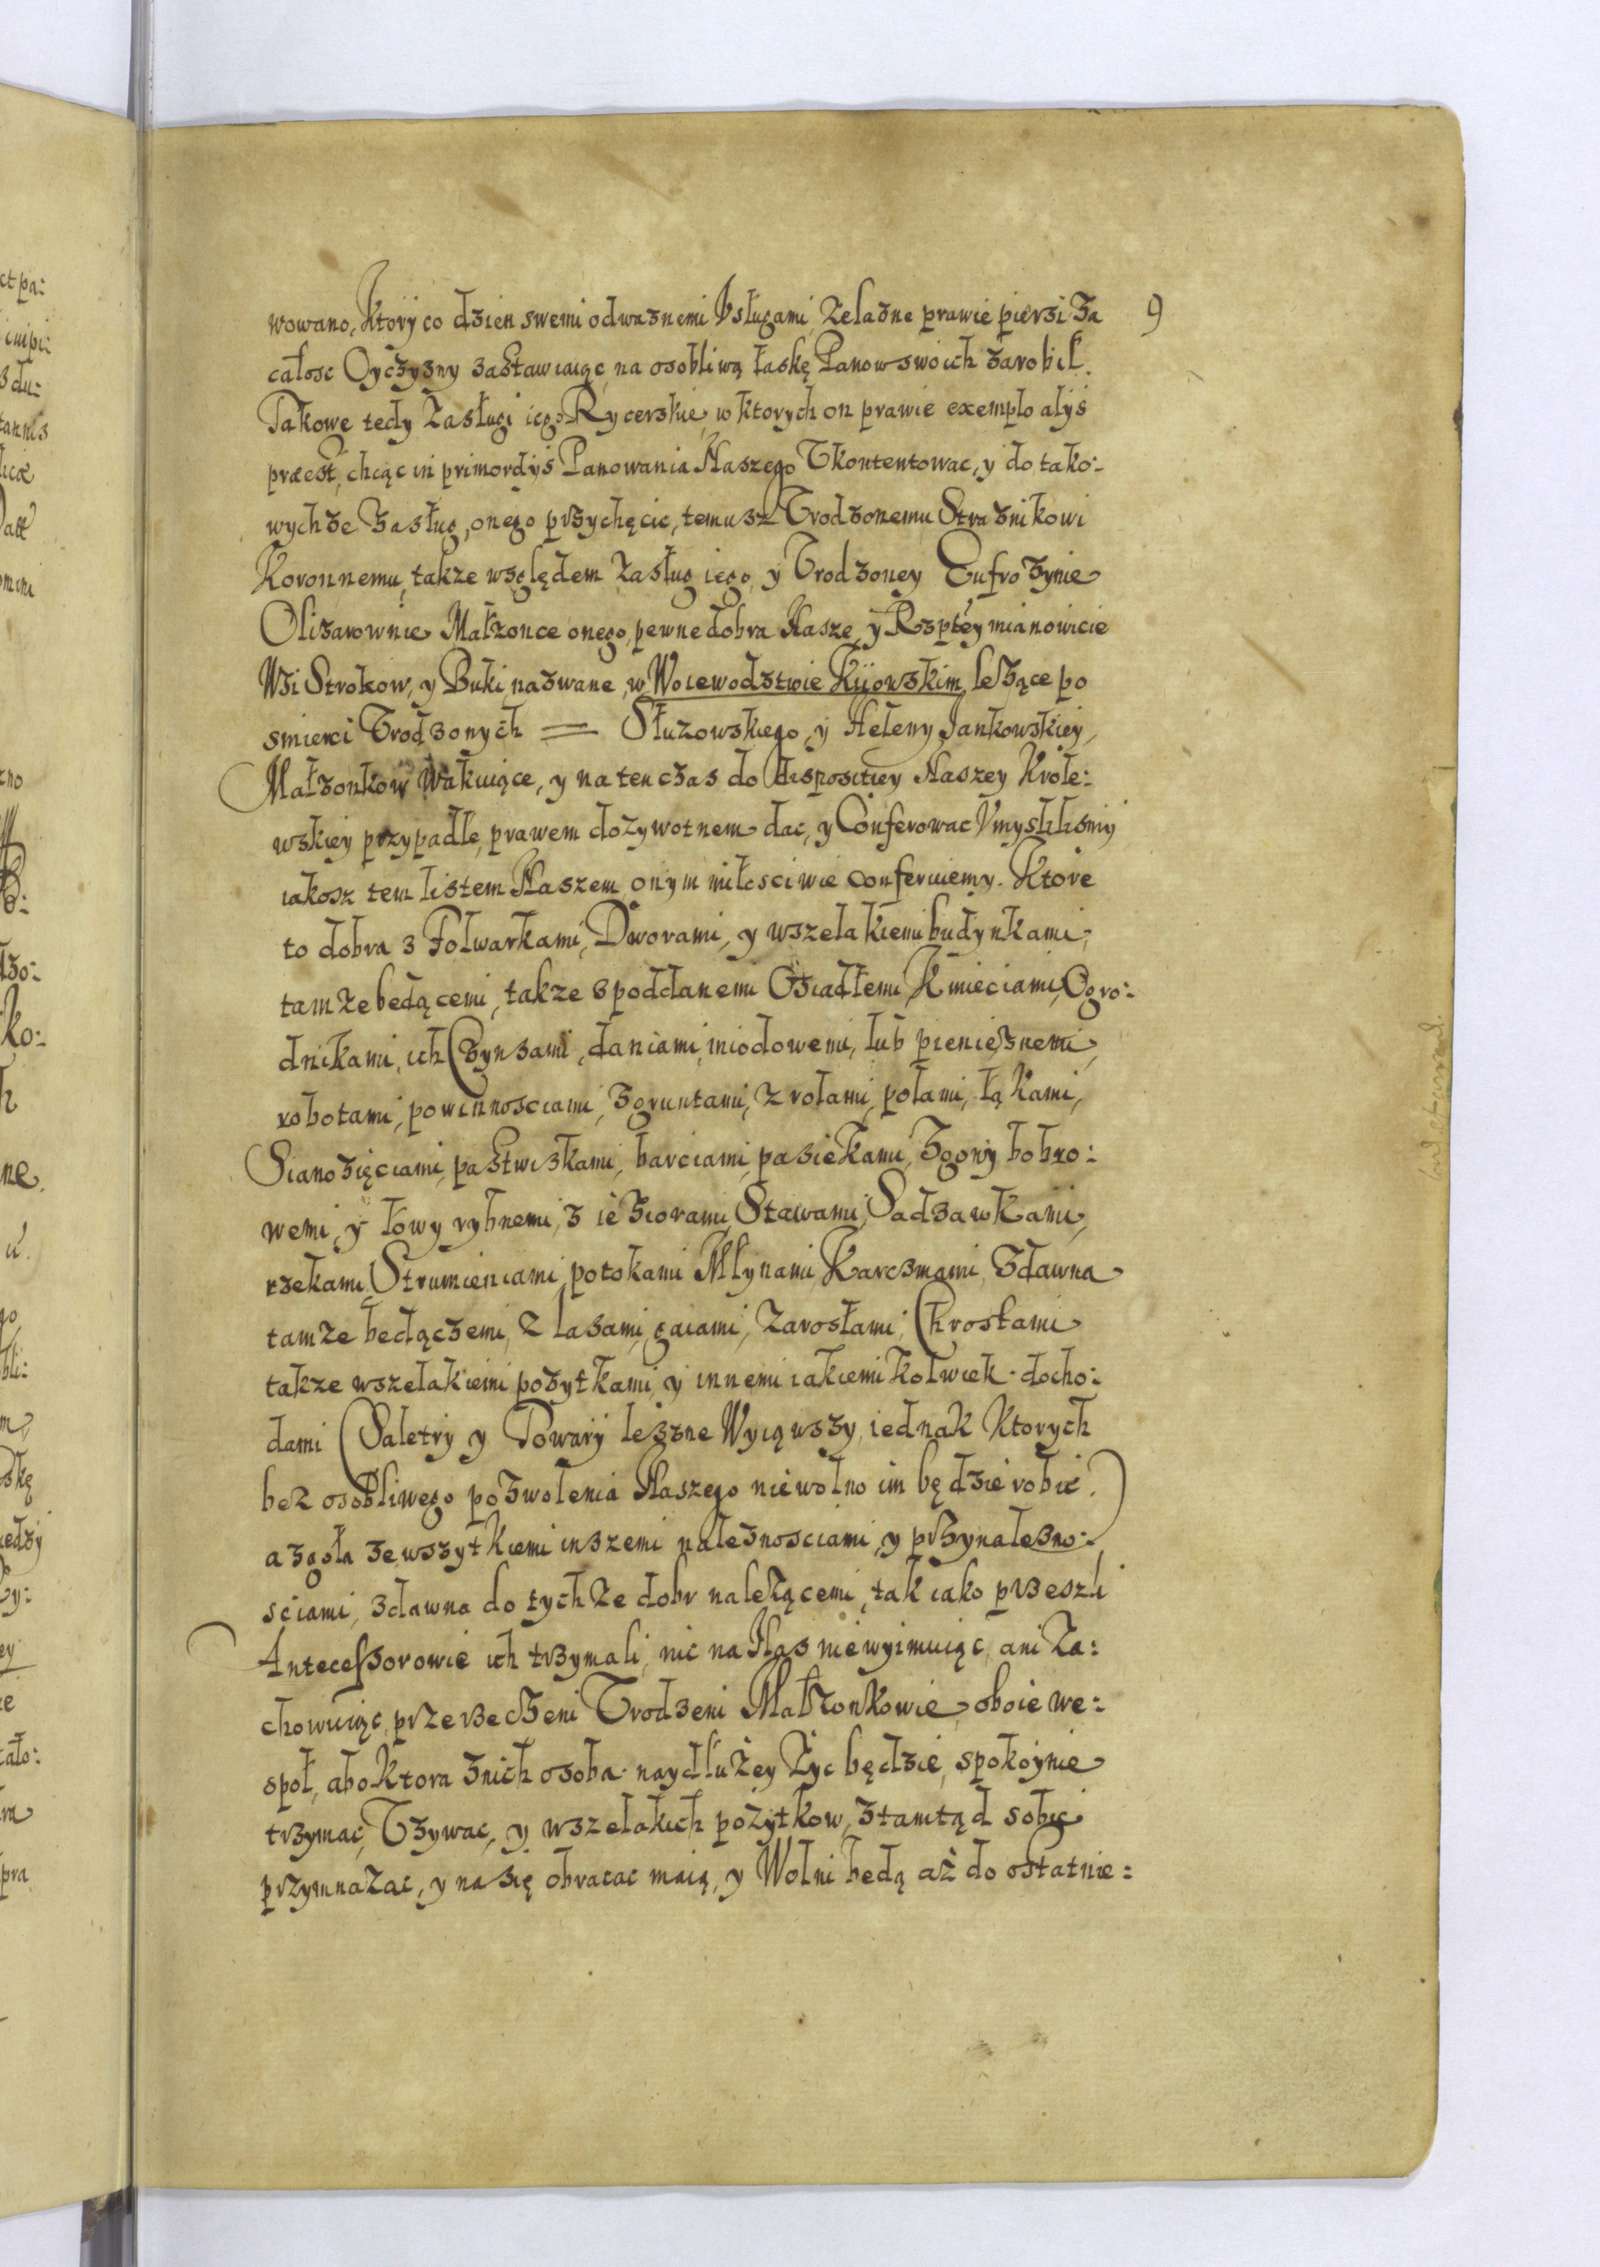 9
wowano, Ktory co dzien swemi odważnemi Vsługami, Żelazne prawie piersi za
całosc Oyczyzny zastawiaiąc, na osobliwą łaskę Panow swoich zarobił.
Takowe tedy Zasługi iego Rycerskie, w ktorych on prawie exemplo alijs
præest, chcąc in primordijs Panowania Naszego Vkontentowac, y do tako:
wychże Zasług, onego przychęcic, temusz Vrodzonemu Straznikowi
Koronnemu, takze względem Zasług iego, y Vrodzoney Eufrozynie
Olizarownie Małzonce onego, pewne dobra Nasze, y Rzptey mianowicie
Wsi Strokow, y Buki nazwane, w Woiewodztwie Kijowskim leżące po
smierci Vrodzonych = Służowskiego, y Heleny Jankowskiey,
Małzonkow Wakuiące, y na ten czas do dispositiey Naszey Krole:
wskiey przypadłe, prawem dozywotnem dac, y Conferowac Vmyslilismy
iakosz tem listem Naszem onym miłosciwie conferuiemy. Ktore
to dobra z Folwarkami, Dworami, y wszelakiemi budynkami,
tamże bedącemi, takze z poddanemi Osiadłemi, Kmieciami, Ogro:
dnikami, ich Czynszami, daniami, miodowemi, lub pieniężnemi,
robotami, powinnosciami, z gruntami, z rolami, polami, łąkami,
Sianożęciami, pastwiskami, barciami, pasiekami, Zgony bobro:
wemi, y łowy rybnemi, z ieziorami, Stawami, Sadzawkami,
rzekami, Strumieniami, potokami, Młynami, Karczmami, Zdawna
tamże będączemi, z lasami, gaiami, Zaroslami, Chrostami
takze wszelakiemi pożytkami, y innemi iakiemikolwiek docho:
dami (Saletry y Towary lezne Wyiąwszy, iednak Ktorych
bez osobliwego pozwolenia Naszego nie wolno im będzie robic.)
a zgoła ze wszytkiemi inszemi należnosciami, y przynależno:
sciami, zdawna do tychże dobr należącemi, tak iako przeszli
Antecessorowie ich trzymali, nic na Nas niewyimuiąc, ani Za:
chowuiąc, przerzeczeni Vrodzeni Małżonkowie, oboie we:
społ, abo ktora z nich osoba naydłużey Życ będzie, spokoynie
trzymac, Vzywac, y wszelakich pożytkow, ztamtąd sobie
przymnażac, y na się obracac maią, y Wolni będą aż do ostatnie: